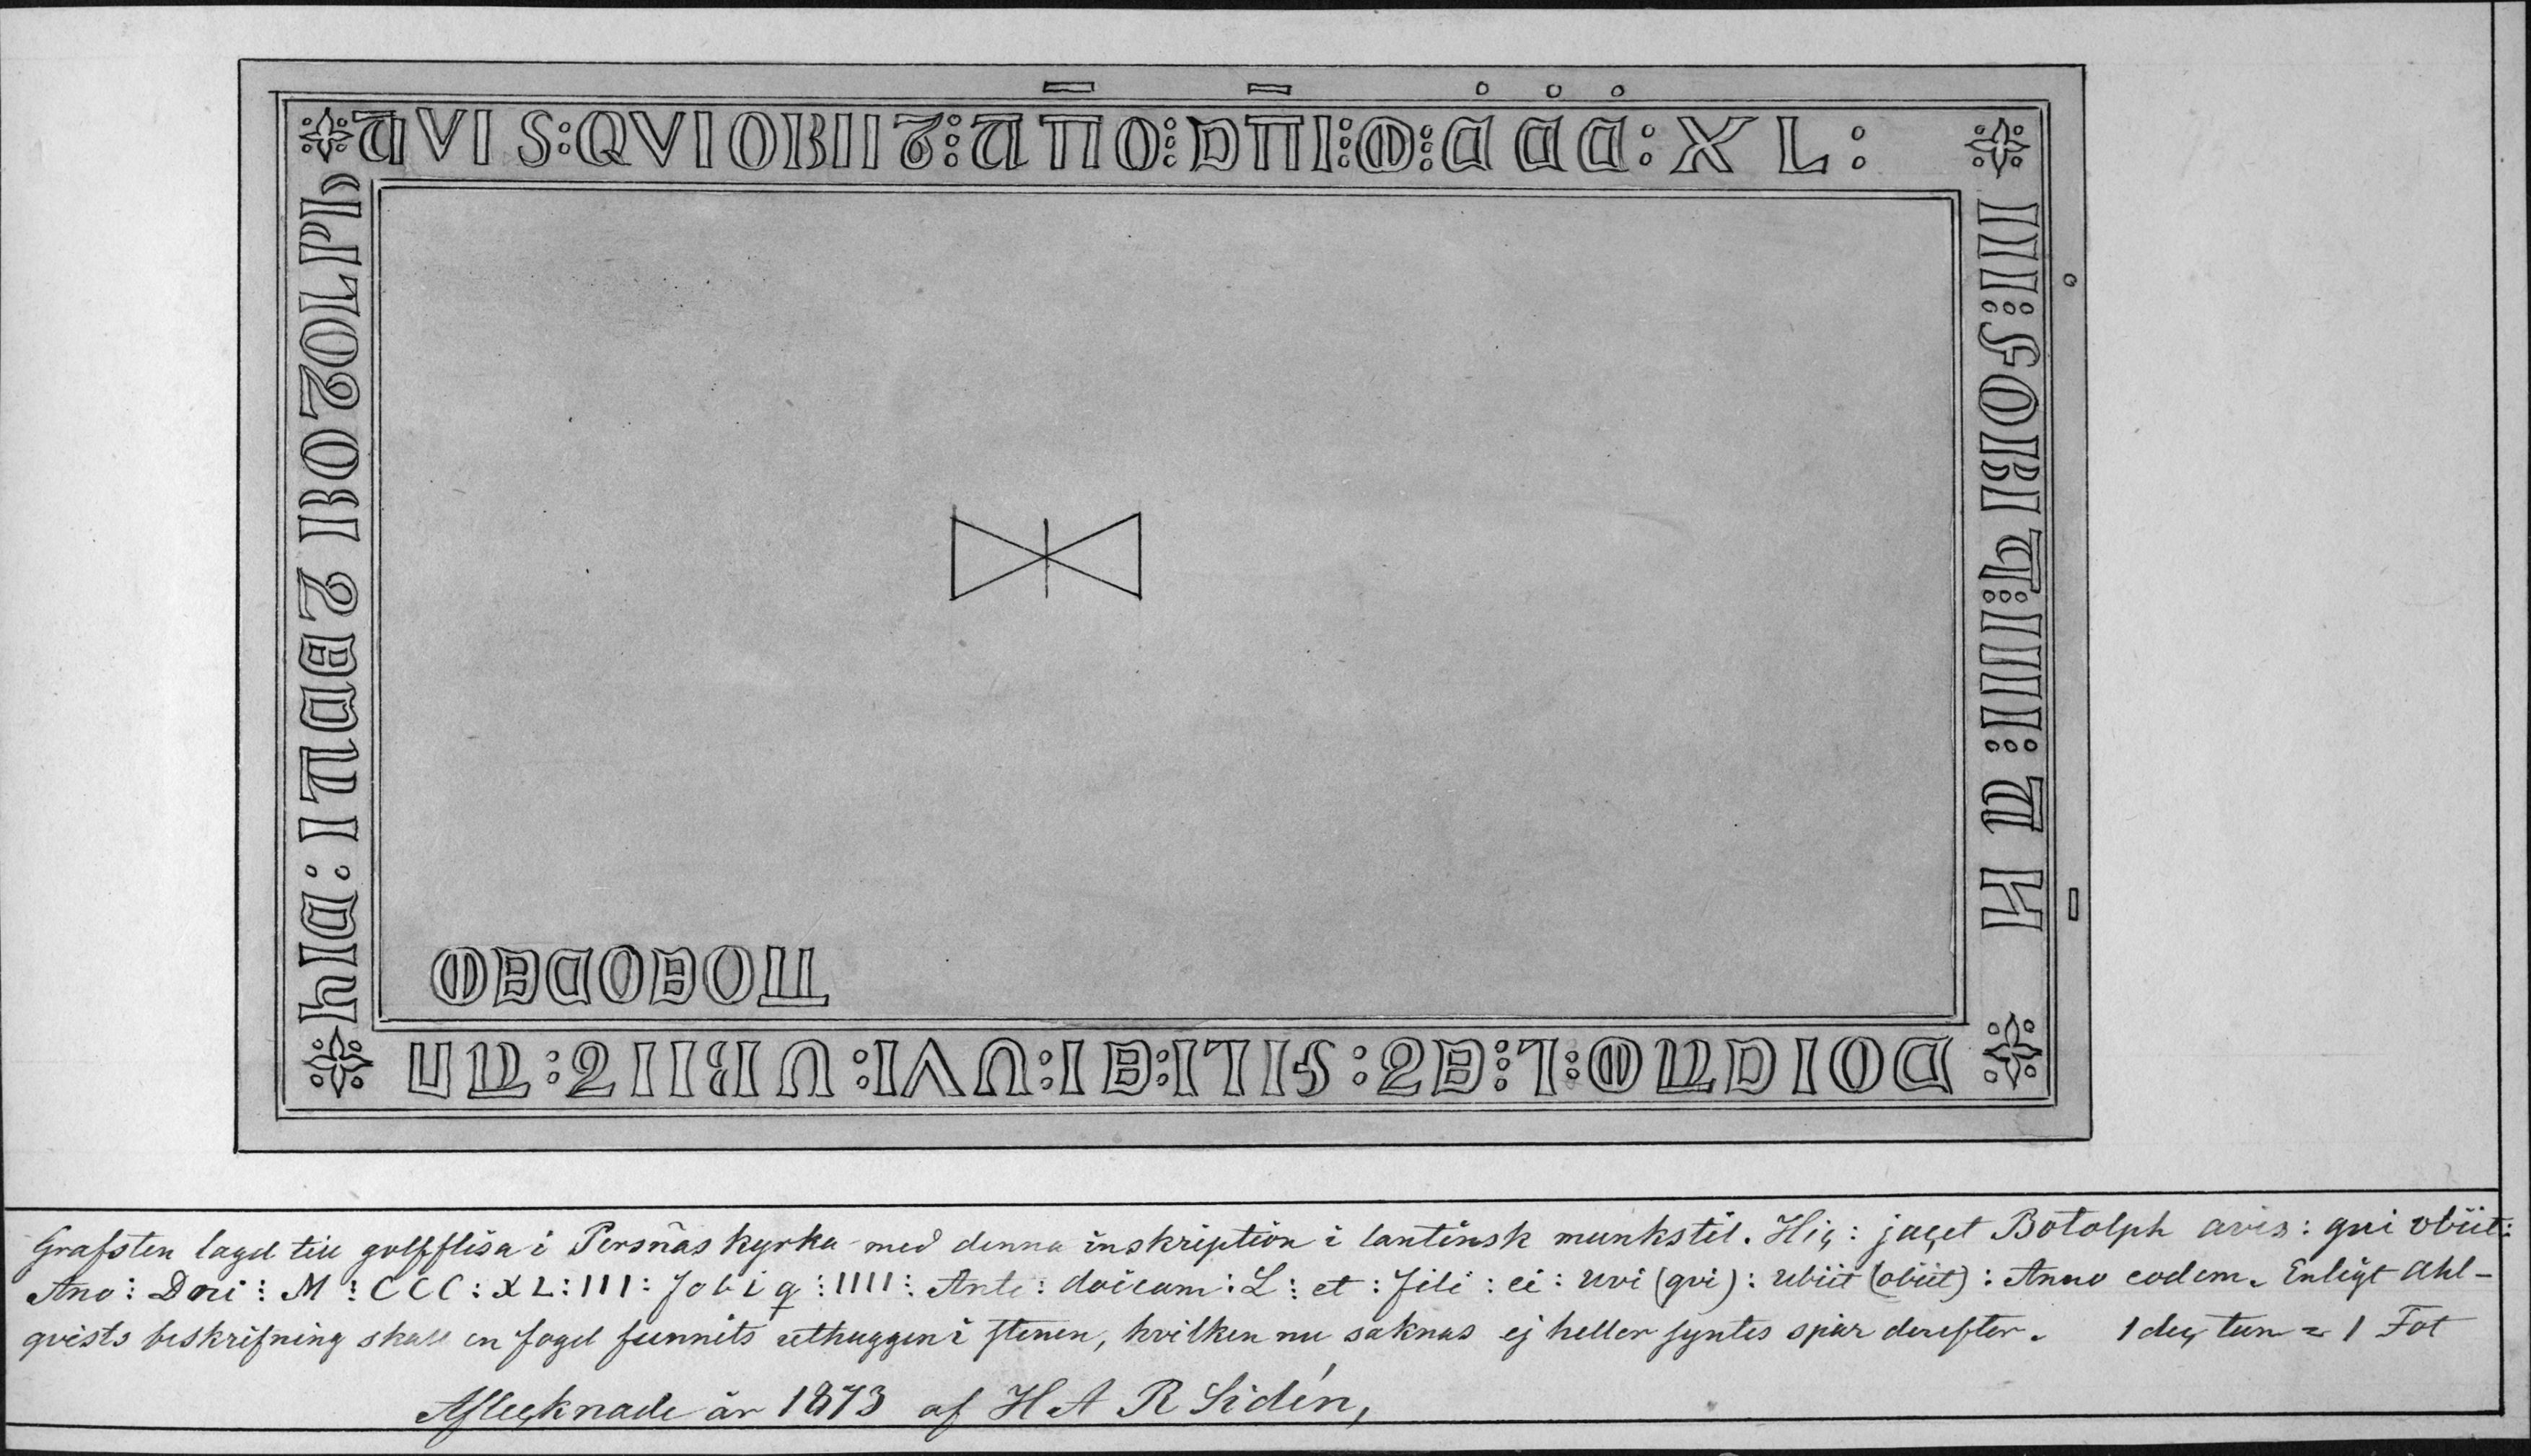 hIC : IACET BOTOLPh
AVIS : QVI OBIIT : ANO : DNI : M : CCC : XL :
III : FOBIQ : IIII : AN
DOICAM : L : ET : FILI : EI : UVI : UBIIT : AN
NOEODEM
Grafsten lagd till golfflisa i Persnäs kyrka med denna inskription i lantinsk munkstil. Hic : jacet Botolph avis : qui obiit :
Ano : Dni : M : CCC : XL : III : fobiq : IIII : Ante : doicam : L : et : fili : ei : uvi (qvi) : ubiit (obiit) : Anno eodem. Enligt Ahl-
qvists beskrifning skall en fogel funnits uthuggen i stenen, hvilken nu saknas ej heller syntes spår derefter. 1 dec tum = 1 Fot
Aftecknade år 1873 af H A R Sidén,